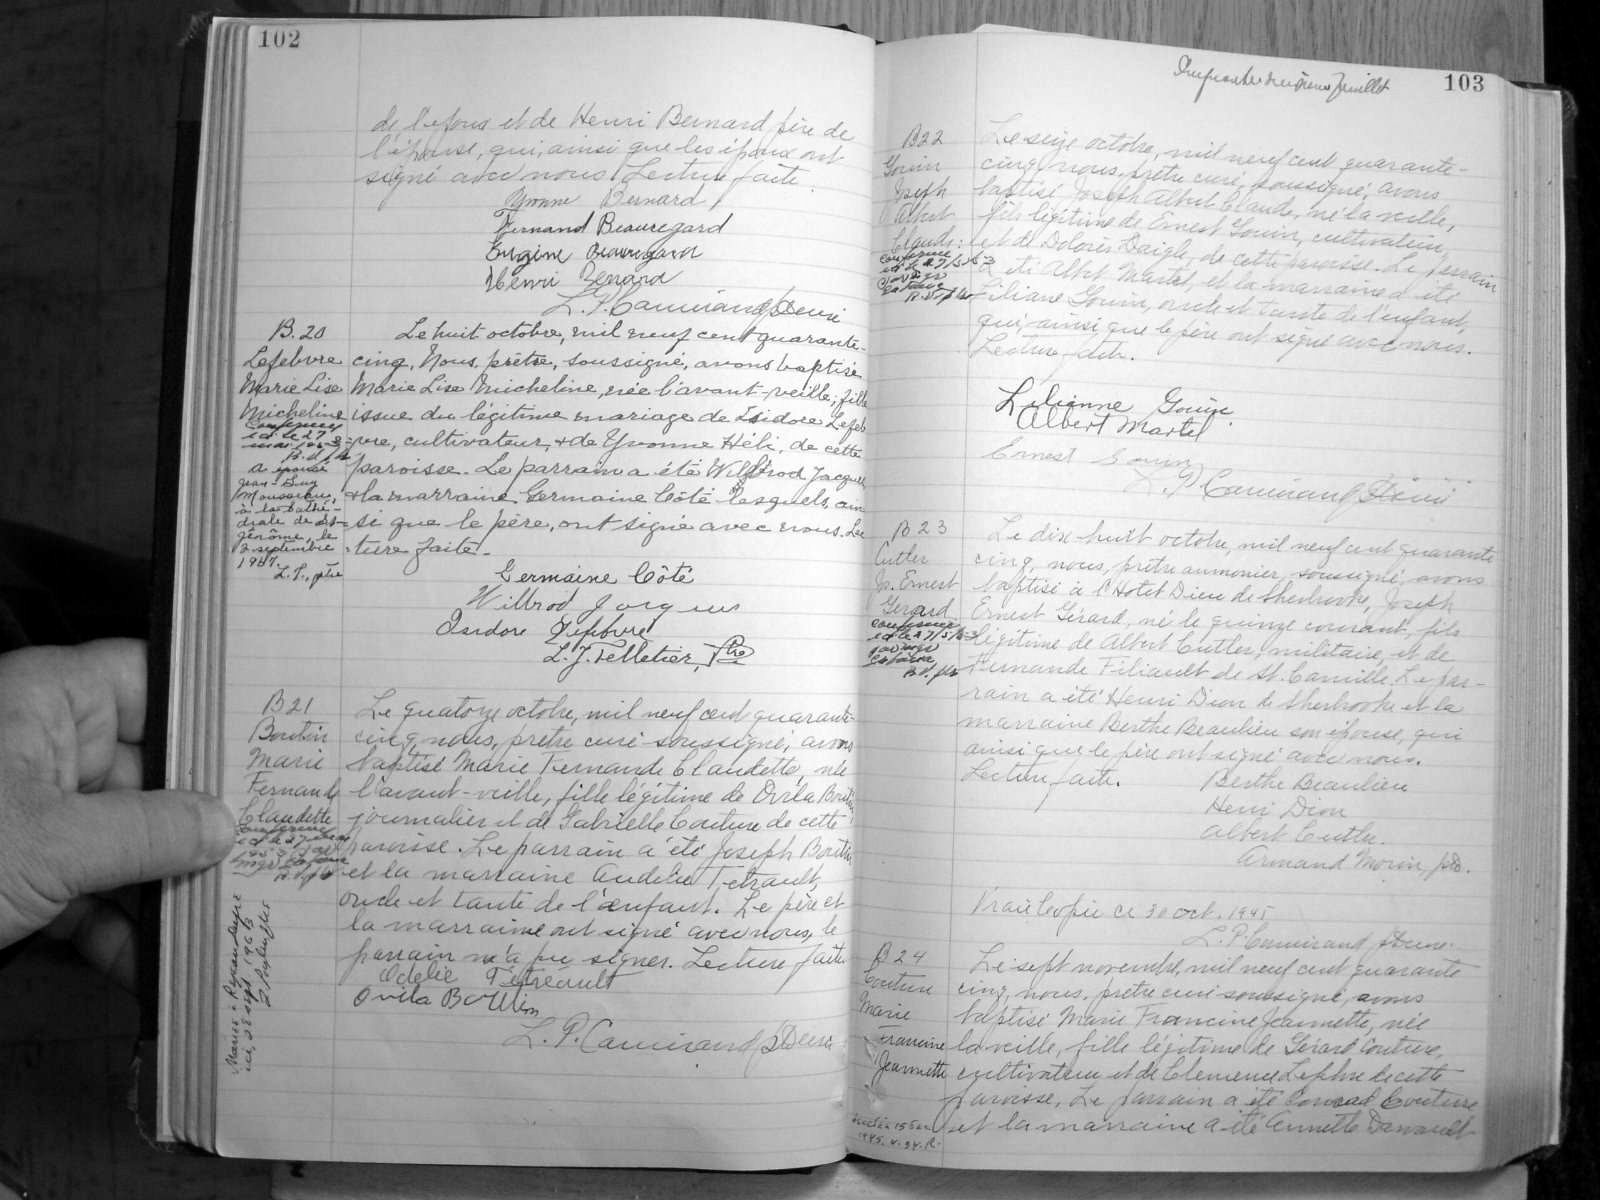 102
de l'époux et de Henri Bernard père de
l'épouse, qui, ainsi que les époux ont
signé avec nous. Lecture faite.
Yvonne Bernard
Fernand Beauregard
Eugène Beauregard
Henri Bernard
L. P. Camirand ptre curé
B. 20
Lefebvre
Marie Lise
Micheline
a épousé
Jean-Guy
Mousseau,
à la Cathé-
drale de St-
Jérôme, le
2 septembre
1967.
L. P., ptre
Le huit octobre, mil neuf cent quarante-
cinq, Nous, prêtre, soussigné, avons baptisé
Marie Lise Micheline, née l'avant-veille; fille
issue du légitime mariage de Isidore Lefeb-
vre, cultivateur, & de Yvonne Héli, de cette
paroisse. Le parrain a été Wilbrod Jacques
& la marraine Germaine Côté lesquels, ain
si que le père, ont signé avec nous. Lec
ture faite.
Germaine Côté
Wilbrod Jacques
Isidore Lefebvre
L. J. Pelletier, Ptre
B21
Boutin
Marie
Fernande
Claudette
Le quatorze octobre, mil neuf cent quarante-
cinq nous, prêtre curé soussigné, avons
baptisé Marie Fernande Claudette, née
l'avant-veille, fille légitime de Ovila Boutin,
journalier et de Gabrielle Couture de cette
paroisse. Le parrain a été Joseph Boutin
et la marraine Audélie Tétrault,
oncle et tante de l'enfant. Le père et
la marraine ont signé avec nous, le
parrain n'a pu signer. Lecture faite.
Odélie Tétréault
Ovila Boutin
L. P. Camirand ptre curé
103
feuillet
B22
Gouin
Joseph
Albert
Claude
Le seize octobre, mil neuf cent quarante-
cinq nous, prêtre curé soussigné, avons
baptisé Joseph Albert Claude, né la veille,
fils légitime de Ernest Gouin, cultivateur,
et de Dolorès Daigle, de cette paroisse. Le parrain
a été Albert Martel, et la marraine a été
Liliane Gouin, oncle et tante de l'enfant,
qui, ainsi que le père ont signé avec nous.
Lecture faite.
Lilianne Gouin
Albert Martel
Ernest Gouin
L. P. Camirand ptre curé
B 23
Cutler
Jos. Ernest
Gérard
Le dix-huit octobre, mil neuf cent quarante
cinq, nous, prêtre aumonier, soussigné, avons
baptisé à l'Hotel Dieu de Sherbrooke, Joseph
Ernest Gérard, né le quinze courant, fils
légitime de Albert Cutler, militaire, et de
Fernande Filiault de St. Camille. Le par-
rain a été Henri Dion de Sherbrooke et la
marraine Berthe Beaulieu son épouse, qui
ainsi que le père ont signé avec nous.
Lecture faite.
Berthe Beaulieu
Henri Dion
Albert Cutler
Armand Morin, ptre.
Vraie copie ce 30 oct. 1945
L. P. Camirand ptre curé
B 24
Couture
Marie
Francine
Jeannette
Le sept novembre, mil neuf cent quarante
cinq, nous, prêtre curé soussigné, avons
baptisé Marie Francine Jeannette, née
la veille, fille légitime de Gérard Couture,
cultivateur et de Clémence Lefebvre de cette
paroisse. Le parrain a été Conrad Couture
et la marraine a été Annette Darveault